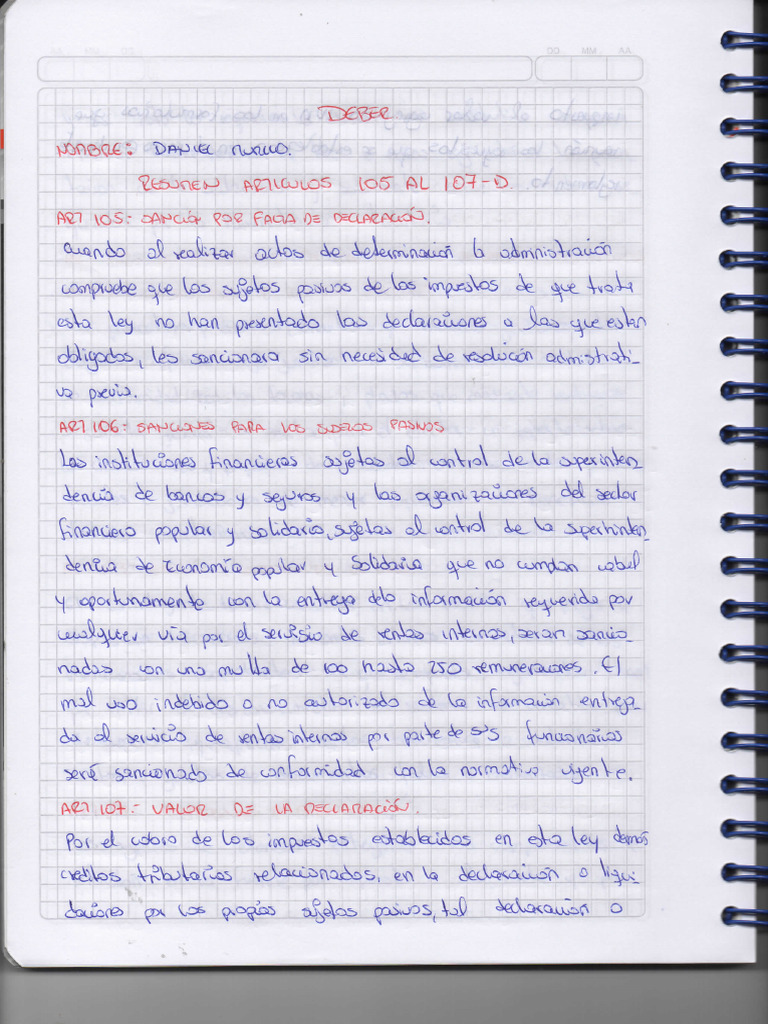 DD. MM. AA.
DEBER
NOMBRE: DANIEL
RESUMEN ARTICULOS 105 AL 107-D.
ART 105:- SANCIÓN POR FALTA DE DECLARACIÓN.
Cuando al realizar actos de determinación la admnistración
compruebe que los sujetos pasivos de los impuestos de que trata
esta ley no han presentado las declaraciones a las que estan
obligados, les sancionara sin necesidad de resolución admistrati-
va previa.
ART 106:- SANCIONES PARA LOS SUJETOS PASIVOS
Las instituciones financieras sujetas al control de la superinten
dencia de bancos y seguros y las organizaciones del sector
financiero popular y solidario, sujetas al control de la superhinten_
dencia de Economía popular y Solidaria que no cumplan cabal
y oportunamente con la entrega dela información requerida por
cualquier vía por el servicio de rentas internas, seran sancio_
nadas con una multa de 100 hasta 250 remuneraciones. El
mal uso indebido o no autorizado de la información entrega_
da al servicio de rentas internas por parte de sus funcionarios
seré sancionado de conformidad con la normativa vigente.
ART 107:- VALOR DE LA DECLARACIÓN.
Por el cobro de los impuestos establecidos en esta ley demás
creditos tributarios relacionados, en la declaración o liqui-
daciones por los propios sujetos pasivos, tal declaración o